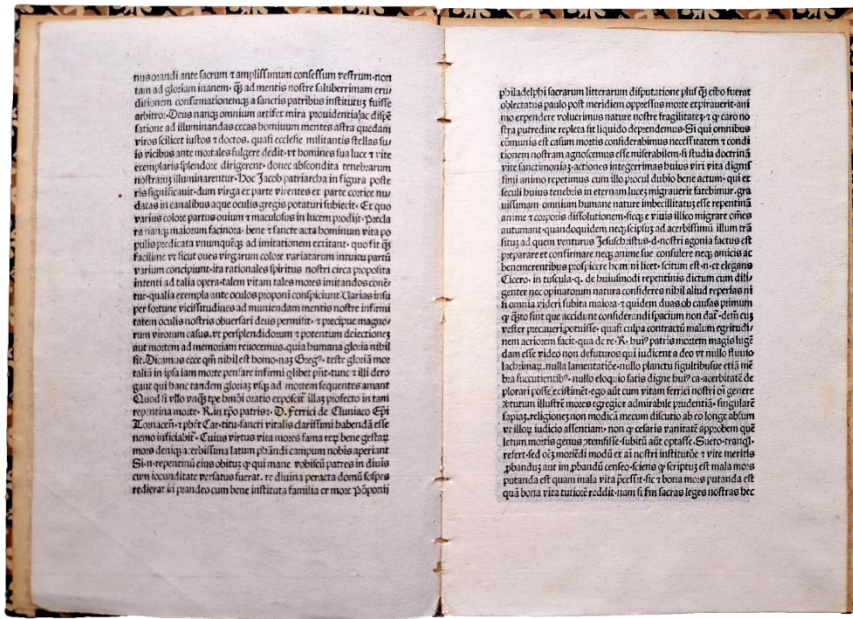 nus orandi ante sacrum ⁊ amplissimum consessum vestrum·non
tam ad gloriam inanem· q̃ꝫ ad mentis nostre saluberrimam eru
ditionem confirmationemqꝫ a sanctis patribus institutũ fuisse
arbitror·Deus nanqꝫ omnium artifex mira prouidentia/ac dispẽ
satione ad illuminandas cecas hominum mentes astra quedam
viros scilicet iustos ⁊ doctos· quasi ecclesie militantis stellas su/
is vicibus ante mortales fulgere dedit·vt homines sua luce ⁊ vite
exemplaris splendore dirigerent· donec abscondita tenebrarum
nostraꝝ illuminarentur·Hoc Jacob patriarcha in figura poste
ris significauit·dum virgas ex parte virentes ex parte cortice nu/
datas in canalibus aque oculis gregis potaturi subiecit· Ex quo
varius colore partus ouium ⁊ maculosus in lucem prodijt· Precla
ra nanqꝫ maiorum facinora· bene ⁊ sancte acta hominum vita po
pulis predicata vnumquẽqꝫ ad imitationem excitant· quo fit q̃ꝫ
facilime vt sicut oues virgarum colore variatarum intuitu partũ
varium concipiunt·ita rationales spiritus nostri circa proposita
intenti ad talia opera·talem vitam tales mores imitandos conẽ/
tur·qualia exempla ante oculos proponi conspiciunt·Uarias insu
per fortune vicissitudines ad muniendam mentis nostre infirmi
tatem oculis nostris obuersari deus permisit· ⁊ precipue magno/
rum virorum casus· vt perspendidorum ⁊ potentum deiectiones
aut mortem ad memoriam reuocemus· quia humana gloria nihil
sit·Dicamus ecce qm̃ nihil est homo·naꝫ Greg⁹· teste gloriã mor
taliũ in ipsa iam morte pensare infirmi qlibet pñt·tunc ⁊ illi dero
gant qui hanc tandem gloriaꝫ vsqꝫ ad mortem sequentes amant
Quod si vllo vnqꝫ tpe hmõi oratio exposcit illaꝫ profecto in tam
repentina morte· R. in xp̃o patris ⁊· D. Ferrici de Cluniaco Ep̃i
Tornaceñ· ⁊ ph̃r Car·titu·sancti vitalis clarissimi habendã esse
nemo inficiabit̃· Cuius virtus vita mores fama reꝝ bene gestaꝝ
mors deniqꝫ acerbissima latum phãndi campum nobis aperiunt
Si·n·repentinũ eius obitũ ꝙ qui mane vobiscũ patres in diuis
cum iocunditate versatus fuerat· re diuina peracta domũ sospes
redierat in prandeo cum bene instituta familia ex more Põponij
philadelphi sacrarum litterarum disputatione plus q̃ꝫ cibo fuerat
oblectatus paulo post meridiem oppressus morte expirauerit·ani
mo expendere voluerimus nature nostre fragilitatẽ·⁊ ꝙ caro no
stra putredine repleta sit liquido deprendemus·Si qui omnibus
cõmunis est casum mortis considerabimus necessitatem ⁊ condi
tionem nostram agnoscemus esse miserabilem·si studia doctrinã
vite sanctimoniaꝫ·actiones integerrimas huius viri vita dignis
simi animo repetimus cum illo procul dubio bene actum· qui ex
seculi huius tenebris in eternam lucẽ migrauerit fatebimur·gra
uissimam omnium humane nature imbecillitatũ esse repentinã
anime ⁊ corporis dissolutionem·sicqꝫ e viuis illico migrare oẽs
autumant· quandoquidem neqꝫ seipsuꝫ ad acerbissimũ illum trã
situꝫ ad quem venturus Jesus christus·d·nostri agonia factus est
preparare et confirmare neqꝫ anime sue consulere neqꝫ amicis ac
benemerentibus prospicere homini licet·scitum est·n·et elegans
Cicero· in tuscula·q· de huiusmodi repentinis dictum cum dili/
genter nec opinatorum natura consideres nihil aliud reperias ni
si omnia videri subita maiora·⁊ quidem duas ob causas primum
ꝙ q̃sto sint que accidunt considerandi spacium non dat̃·dem cuꝫ
vester precaueri potuisse· quasi culpa contractũ malum egritudi/
nem acriorem facit·qua de re·R· hui⁹ patris mortem magis luge
dam esse video non defuturos qui iudicent a deo vt nullo fluuio
lachrimaꝝ·nulla lamentatiõe·nullo planctu singultibusue etiã mẽ
bra succutientib⁹· nullo eloquio satis digne hui⁹ ca·acerbitatẽ de
plorari posse existimẽt·ego aũt cum vitam ferrici nostri oĩ genere
virtutum illustrẽ mores egregior admirabile prudentiã· singularẽ
sapiaꝫ·religionẽꝫ non modicã mecum discutio ab eo longe absum
vt illoꝝ iudicio assentiam· non ꝙ cesaris vanitatẽ approbem quẽ
letum mortis genus ꝯtemsisse·subitũ aũt optasse· Sueto·tranql·
refert·sed oẽꝫ moriẽdi modũ ex aĩ nostri institutõe ⁊ vite meritis
ꝓbanduꝫ aut improbandũ censeo·sciens ꝙ scriptuꝫ est mala mors
putanda est quam mala vita p̃cessit·sic ⁊ bona mors putanda est
quã bona vita tutiorẽ reddit·nam si fm̃ sacras leges nostras hec